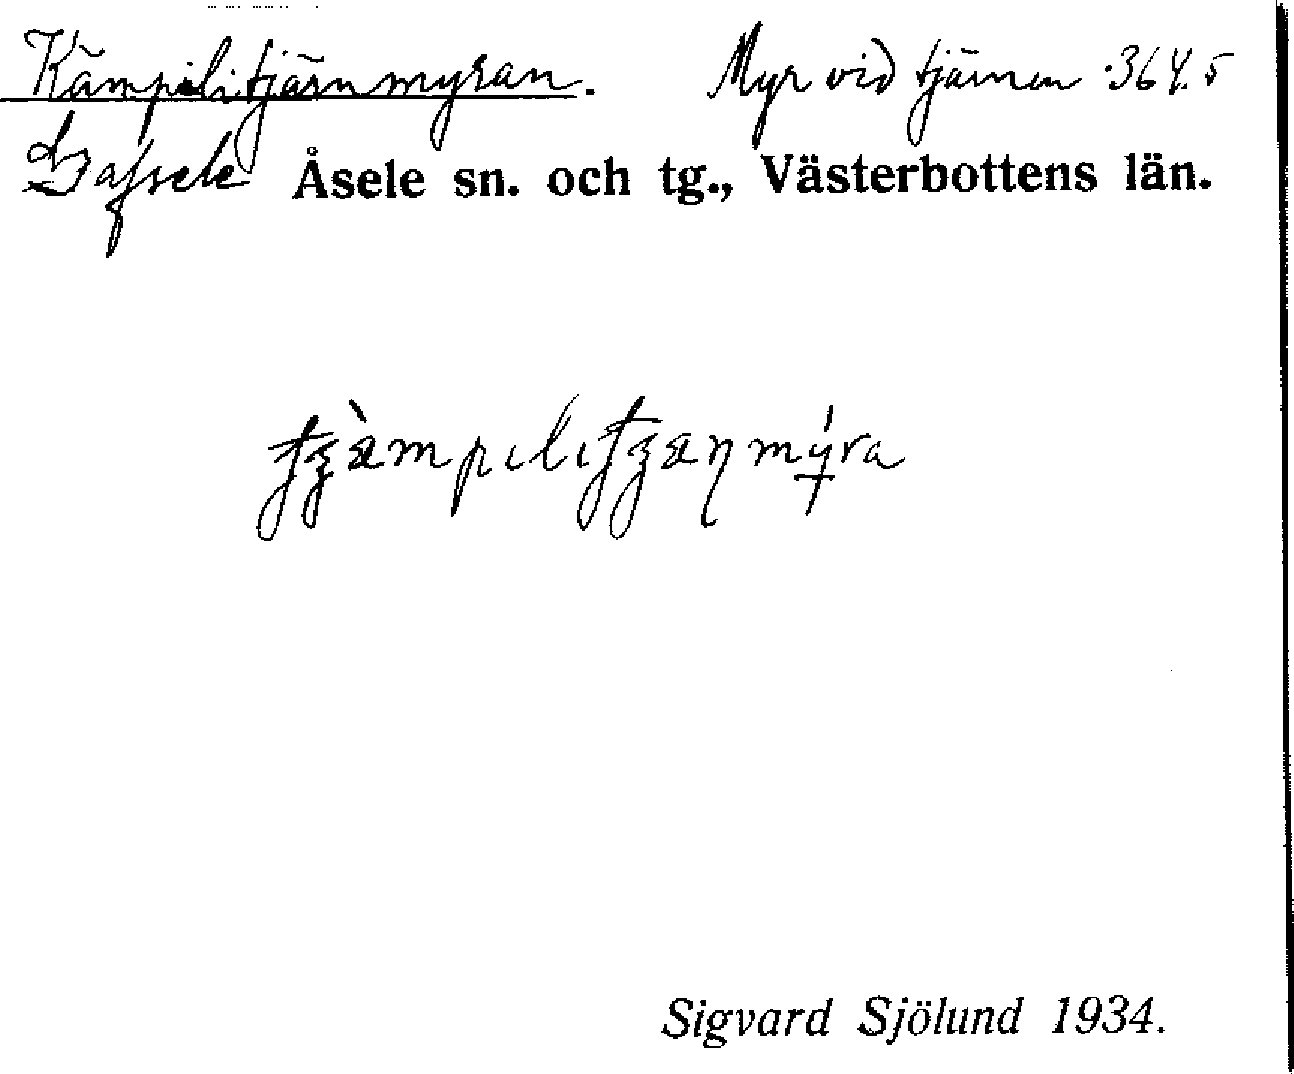 Kämpilitjärnmyran. Myr vid tjärnen ·364.5
Gafsele Åsele sn. och tg., Västerbottens län.
Sigvard Sjölund 1934.